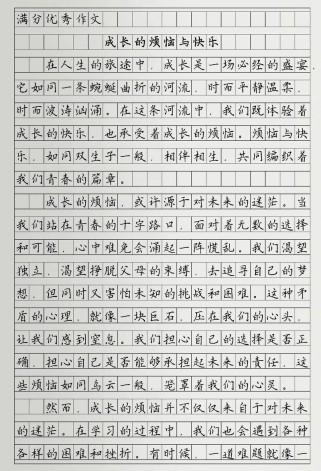 满分优秀作文
成长的烦恼与快乐
在人生的旅途中，成长是一场必经的盛宴，
它如同一条蜿蜒曲折的河流，时而平静温柔，
时而波涛汹涌。在这条河流中，我们既体验着
成长的快乐，也承受着成长的烦恼。烦恼与快
乐，如同双生子一般，相伴相生，共同编织着
我们青春的篇章。
成长的烦恼，或许源于对未来的迷茫。当
我们站在青春的十字路口，面对着无数的选择
和可能，心中难免会涌起一阵慌乱。我们渴望
独立，渴望挣脱父母的束缚，去追寻自己的梦
想，但同时又害怕未知的挑战和困难。这种矛
盾的心理，就像一块巨石，压在我们的心头，
让我们感到窒息。我们担心自己的选择是否正
确，担心自己是否能够承担起未来的责任，这
些烦恼如同乌云一般，笼罩着我们的心灵。
然而，成长的烦恼并不仅仅来自于对未来
的迷茫。在学习的过程中，我们也会遇到各种
各样的困难和挫折。有时候，一道难题就像一